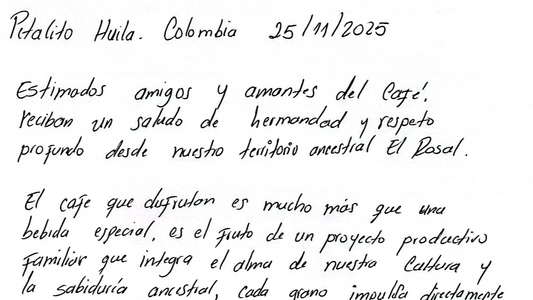 Pitalito Huila. Colombia 25/11/2025
Estimados amigos y amantes del Café,
reciban un saludo de hermandad y respeto
profundo desde nuestro territorio ancestral El Rosal.
El cafe que disfrutan es mucho más que una
bebida especial, es el fruto de un proyecto productivo
Familiar que integra el alma de nuestra Cultura y
la sabiduría ancestral, cada grano impulsa directamente